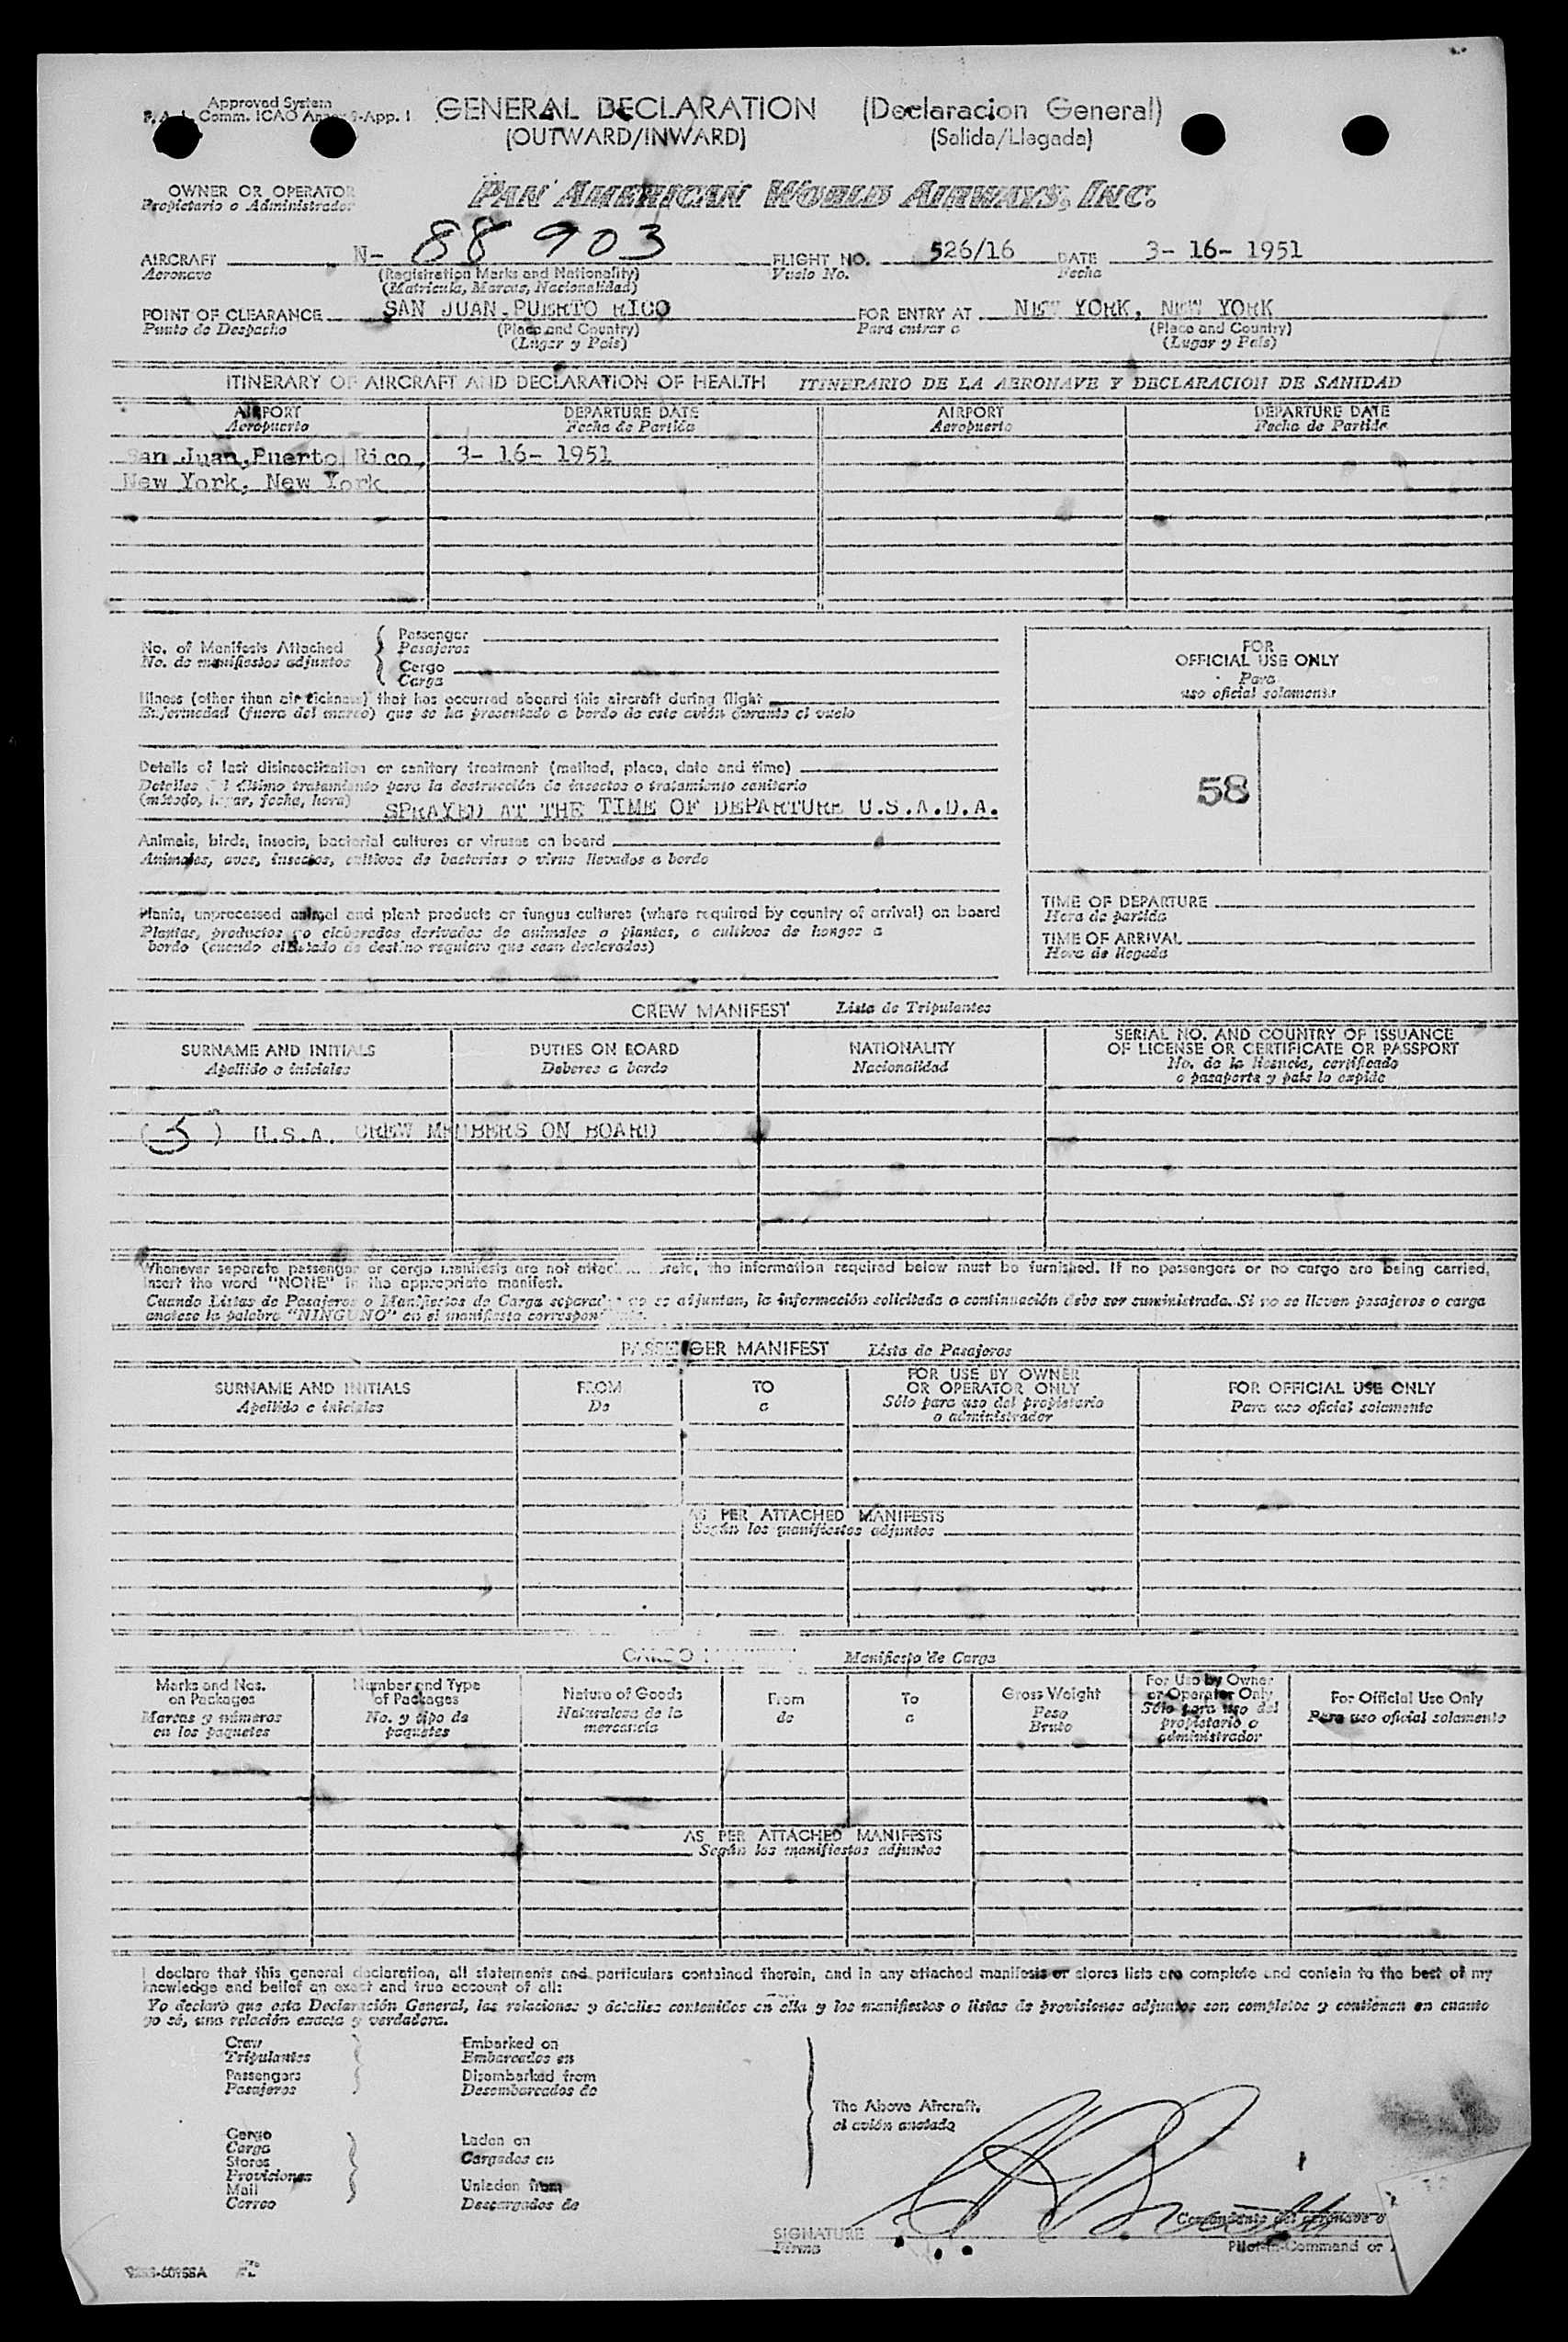 Approved System
Comm. ICAO Annex 9-App. I
GENERAL DECLARATION (Declaracion General)
(OUTWARD/INWARD) (Salida/Llegada)
OWNER OR OPERATOR
Propietario o Administrador
PAN AMERICAN WORLD AIRWAYS, INC.
AIRCRAFT N- 88 903 FLIGHT NO. 526/16 DATE 3- 16- 1951
Aeronave (Registration Marks and Nationality) Vuelo No. Fecha
(Matricula, Marcas, Nacionalidad)
POINT OF CLEARANCE SAN JUAN, PUERTO RICO FOR ENTRY AT NEW YORK, NEW YORK
Punto de Despacho (Place and Country) Para entrar a (Place and Country)
(Lugar y País) (Lugar y País)
ITINERARY OF AIRCRAFT AND DECLARATION OF HEALTH ITINERARIO DE LA AERONAVE Y DECLARACION DE SANIDAD
AIRPORT DEPARTURE DATE AIRPORT DEPARTURE DATE
Aeropuerto Fecha de Partida Aeropuerto Fecha de Partida
San Juan, Puerto Rico, 3- 16- 1951
New York, New York
No. of Manifests Attached
No. de manifiestos adjuntos
Passenger
Pasajeros
Cargo
Carga
Illness (other than air sickness) that has occurred aboard this aircraft during flight
Enfermedad (fuera del mareo) que se ha presentado a bordo de este avión durante el vuelo
Details of last disinsectization or sanitary treatment (method, place, date and time)
Detalles del último tratamiento para la destrucción de insectos o tratamiento sanitario
(método, lugar, fecha, hora) SPRAYED AT THE TIME OF DEPARTURE U.S.A.D.A.
Animals, birds, insects, bacterial cultures or viruses on board
Animales, aves, insectos, cultivos de bacterias o virus llevados a bordo
Plants, unprocessed animal and plant products or fungus cultures (where required by country of arrival) on board
Plantas, productos no elaborados derivados de animales o plantas, o cultivos de hongos a
bordo (cuando el Estado de destino requiera que sean declarados)
FOR
OFFICIAL USE ONLY
Para
uso oficial solamente
58
TIME OF DEPARTURE
Hora de partida
TIME OF ARRIVAL
Hora de llegada
CREW MANIFEST Lista de Tripulantes
SURNAME AND INITIALS DUTIES ON BOARD NATIONALITY SERIAL NO. AND COUNTRY OF ISSUANCE
OF LICENSE OR CERTIFICATE OR PASSPORT
Apellido e iniciales Deberes a bordo Nacionalidad No. de la licencia, certificado
o pasaporte y país lo expide
(5) U.S.A. CREW MEMBERS ON BOARD
Whenever separate passenger or cargo manifests are not attached hereto, the information required below must be furnished. If no passengers or no cargo are being carried,
insert the word "NONE" in the appropriate manifest.
Cuando Listas de Pasajeros o Manifiestos de Carga separados no se adjuntan, la información solicitada a continuación debe ser suministrada. Si no se lleven pasajeros o carga
anótese la palabra "NINGUNO" en el manifiesto correspondiente.
PASSENGER MANIFEST Lista de Pasajeros
SURNAME AND INITIALS FROM TO FOR USE BY OWNER
OR OPERATOR ONLY FOR OFFICIAL USE ONLY
Apellido e iniciales De a Sólo para uso del propietario
o administrador Para uso oficial solamente
AS PER ATTACHED MANIFESTS
Según los manifiestos adjuntos
CARGO MANIFEST Manifiesto de Carga
Marks and Nos.
on Packages
Marcas y números
en los paquetes
Number and Type
of Packages
No. y tipo de
paquetes
Nature of Goods
Naturaleza de la
mercancía
From
de
To
a
Gross Weight
Peso
Bruto
For Use by Owner
or Operator Only
Sólo para uso del
propietario o
administrador
For Official Use Only
Para uso oficial solamente
AS PER ATTACHED MANIFESTS
Según los manifiestos adjuntos
I declare that this general declaration, all statements and particulars contained therein, and in any attached manifests or stores lists are complete and contain to the best of my
knowledge and belief an exact and true account of all:
Yo declaro que esta Declaración General, las relaciones y detalles contenidos en ella y los manifiestos o listas de provisiones adjuntos son completos y contienen en cuanto
yo sé, una relación exacta y verdadera.
Crew Embarked on
Tripulantes Embarcados en
Passengers Disembarked from
Pasajeros Desembarcados de
The Above Aircraft.
el avión anotado
Cargo Laden on
Carga Cargados en
Stores
Provisiones
Mail Unladen from
Correo Descargados de
SIGNATURE Comandante del aeronave o
Firma Pilot-in-Command or